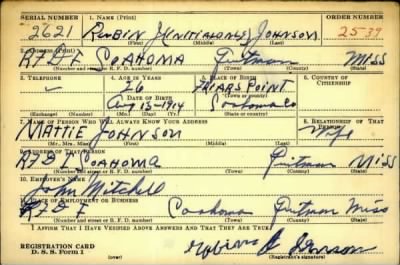 SERIAL NUMBER 1. NAME (Print) ORDER NUMBER
2621 RUBIN J(INITIAL ONLY) JOHNSON 2539
(First) (Middle) (Last)
2. ADDRESS (Print)
RFD 1 COAHOMA Quitman Miss
(Number and street or R. F. D. number) (Town) (County) (State)
3. TELEPHONE 4. AGE IN YEARS 5. PLACE OF BIRTH 6. COUNTRY OF CITIZENSHIP
26 FRIARS POINT
DATE OF BIRTH (Town or county)
Aug 13-1914 Coahoma Co
(Exchange) (Number) (Mo.) (Day) (Yr.) (State or country)
7. NAME OF PERSON WHO WILL ALWAYS KNOW YOUR ADDRESS 8. RELATIONSHIP OF THAT PERSON
MATTIE JOHNSON Wife
(Mr., Mrs., Miss) (First) (Middle) (Last)
9. ADDRESS OF THAT PERSON
RFD 1 COAHOMA Quitman Miss
(Number and street or R. F. D. number) (Town) (County) (State)
10. EMPLOYER'S NAME
John Mitchell
11. PLACE OF EMPLOYMENT OR BUSINESS
RFD 1 Coahoma Quitman Miss
(Number and street or R. F. D. number) (Town) (County) (State)
I AFFIRM THAT I HAVE VERIFIED ABOVE ANSWERS AND THAT THEY ARE TRUE.
REGISTRATION CARD
D. S. S. Form 1 (Registrant's signature)